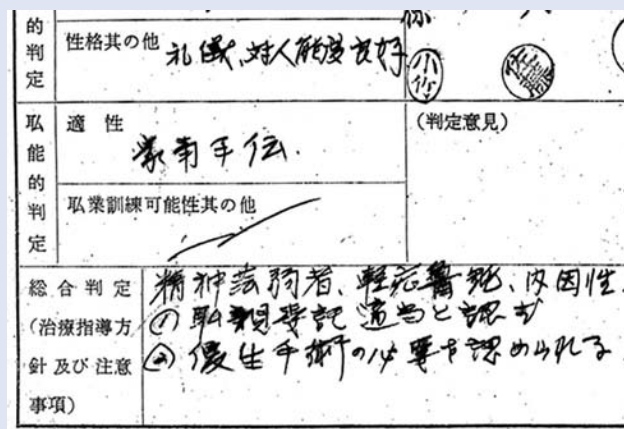 的判定
性格其の他
礼儀、対人態度良好
小
佐藤
职能的判定
適性
家事手伝.
(判定意見)
职業訓練可能性其の他
総合判定
(治療指導方
針及び注意
事項)
精神薄弱者、軽症魯鈍、内因性.
① 职親委託適当と認む
② 優生手術の必要を認められる